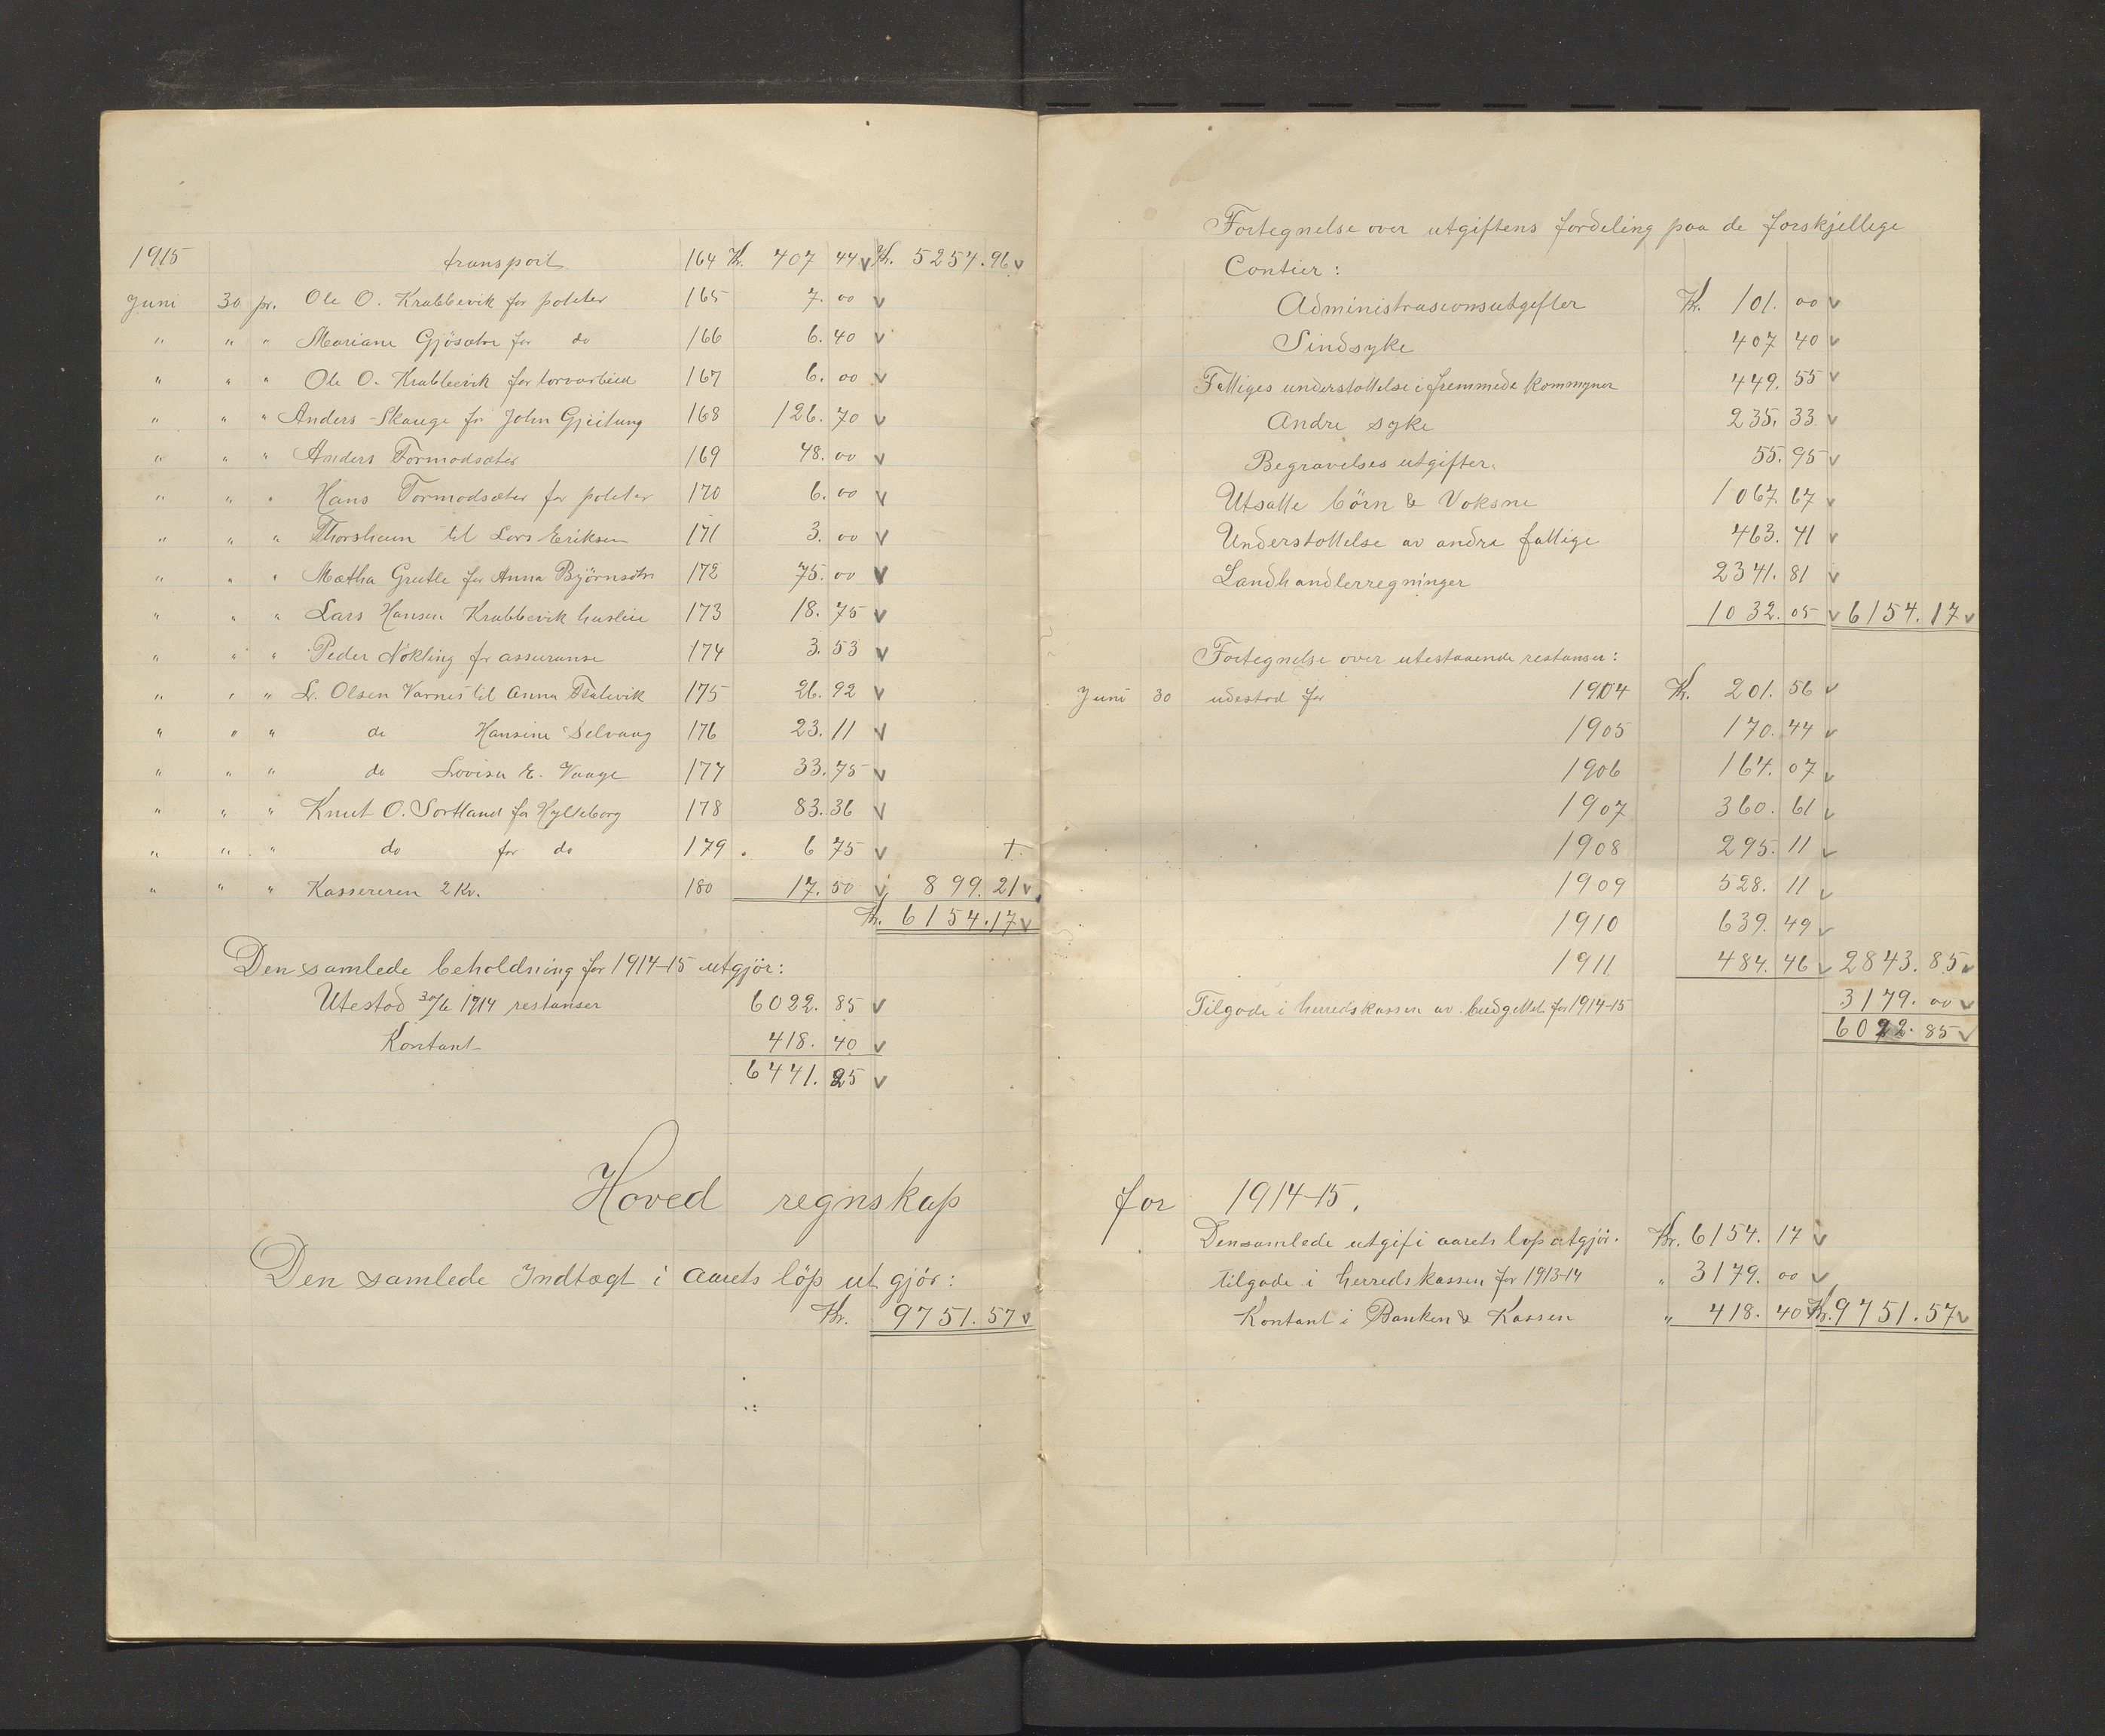 1915 transport 164 Kr. 407 44 v Kr. 5254.96 v
Juni 30 pr. Ole O. Krabbevik for poteter 165 7.00 v
" " " Mariane Gjøsæter for do 166 6.40 v
" " " Ole O. Krabbevik for torvarbeid 167 6.00 v
" " " Anders Skauge for John Gjeitung 168 126.70 v
" " " Anders Tormodsæter 169 48.00 v
" " " Hans Tormodsæter for poteter 170 6.00 v
" " " Thorsheim til Lars Eriksen 171 3.00 v
" " " Mætha Grutle for Anna Bjørnsætr 172 75.00 v
" " " Lars Hansen Krabbevik husleie 173 18.75 v
" " " Peder Nøkling for assuranse 174 3.53 v
" " " L. Olsen Varnes til Anna 175 26.92 v
" " " do Hansine Selvaag 176 23.11 v
" " " do Lovisa E. Vaage 177 33.75 v
" " " Knut O. Sortland for Hylleborg 178 83.36 v
" " " do for do 179 6 75 v
" " " Kassereren 2 Kv. 180 17.50 v 899.21 v
Kr. 6154.17 v
Den samlede beholdning for 1914-15 utgjör:
Utestod 30/6 1914 restanser 6022.85 v
Kontant 418.40 v
6441.25 v
Hoved regnskap
Den samlede Indtægt i aarets löp utgjör:
Kr. 9751.57 v
Fortegnelse over utgiftens fordeling paa de forskjellige
Contier:
Administrasionsutgifter Kr. 101.00 v
Sindsyke 407 40 v
Fattiges understøttelse i fremmede Kommuner 449.55 v
Andre syke 235.33 v
Begravelses utgifter. 55.95 v
Utsatte börn & Voksne 1067.67 v
Understøttelse av andre fattige 463.41 v
Landhandlerregninger 2341.81 v
1032.05 v 6154.17 v
Fortegnelse over utestaaende restanser:
Juni 30 udestod for 1904 Kr. 201.56 v
1905 170.44 v
1906 164.07 v
1907 360.61 v
1908 295.11 v
1909 528.11 v
1910 639.49 v
1911 484.46 v 2843.85 v
Tilgode i herredskassen av budgettet for 1914-15 3179.00 v
6022.85 v
for 1914-15.
Den samlede utgift i aarets løp utgjør. Kr. 6154.17 v
tilgode i herredskassen for 1913-14 " 3179.00 v
Kontant i Banken & Kassen " 418.40 v Kr. 9751.57 v